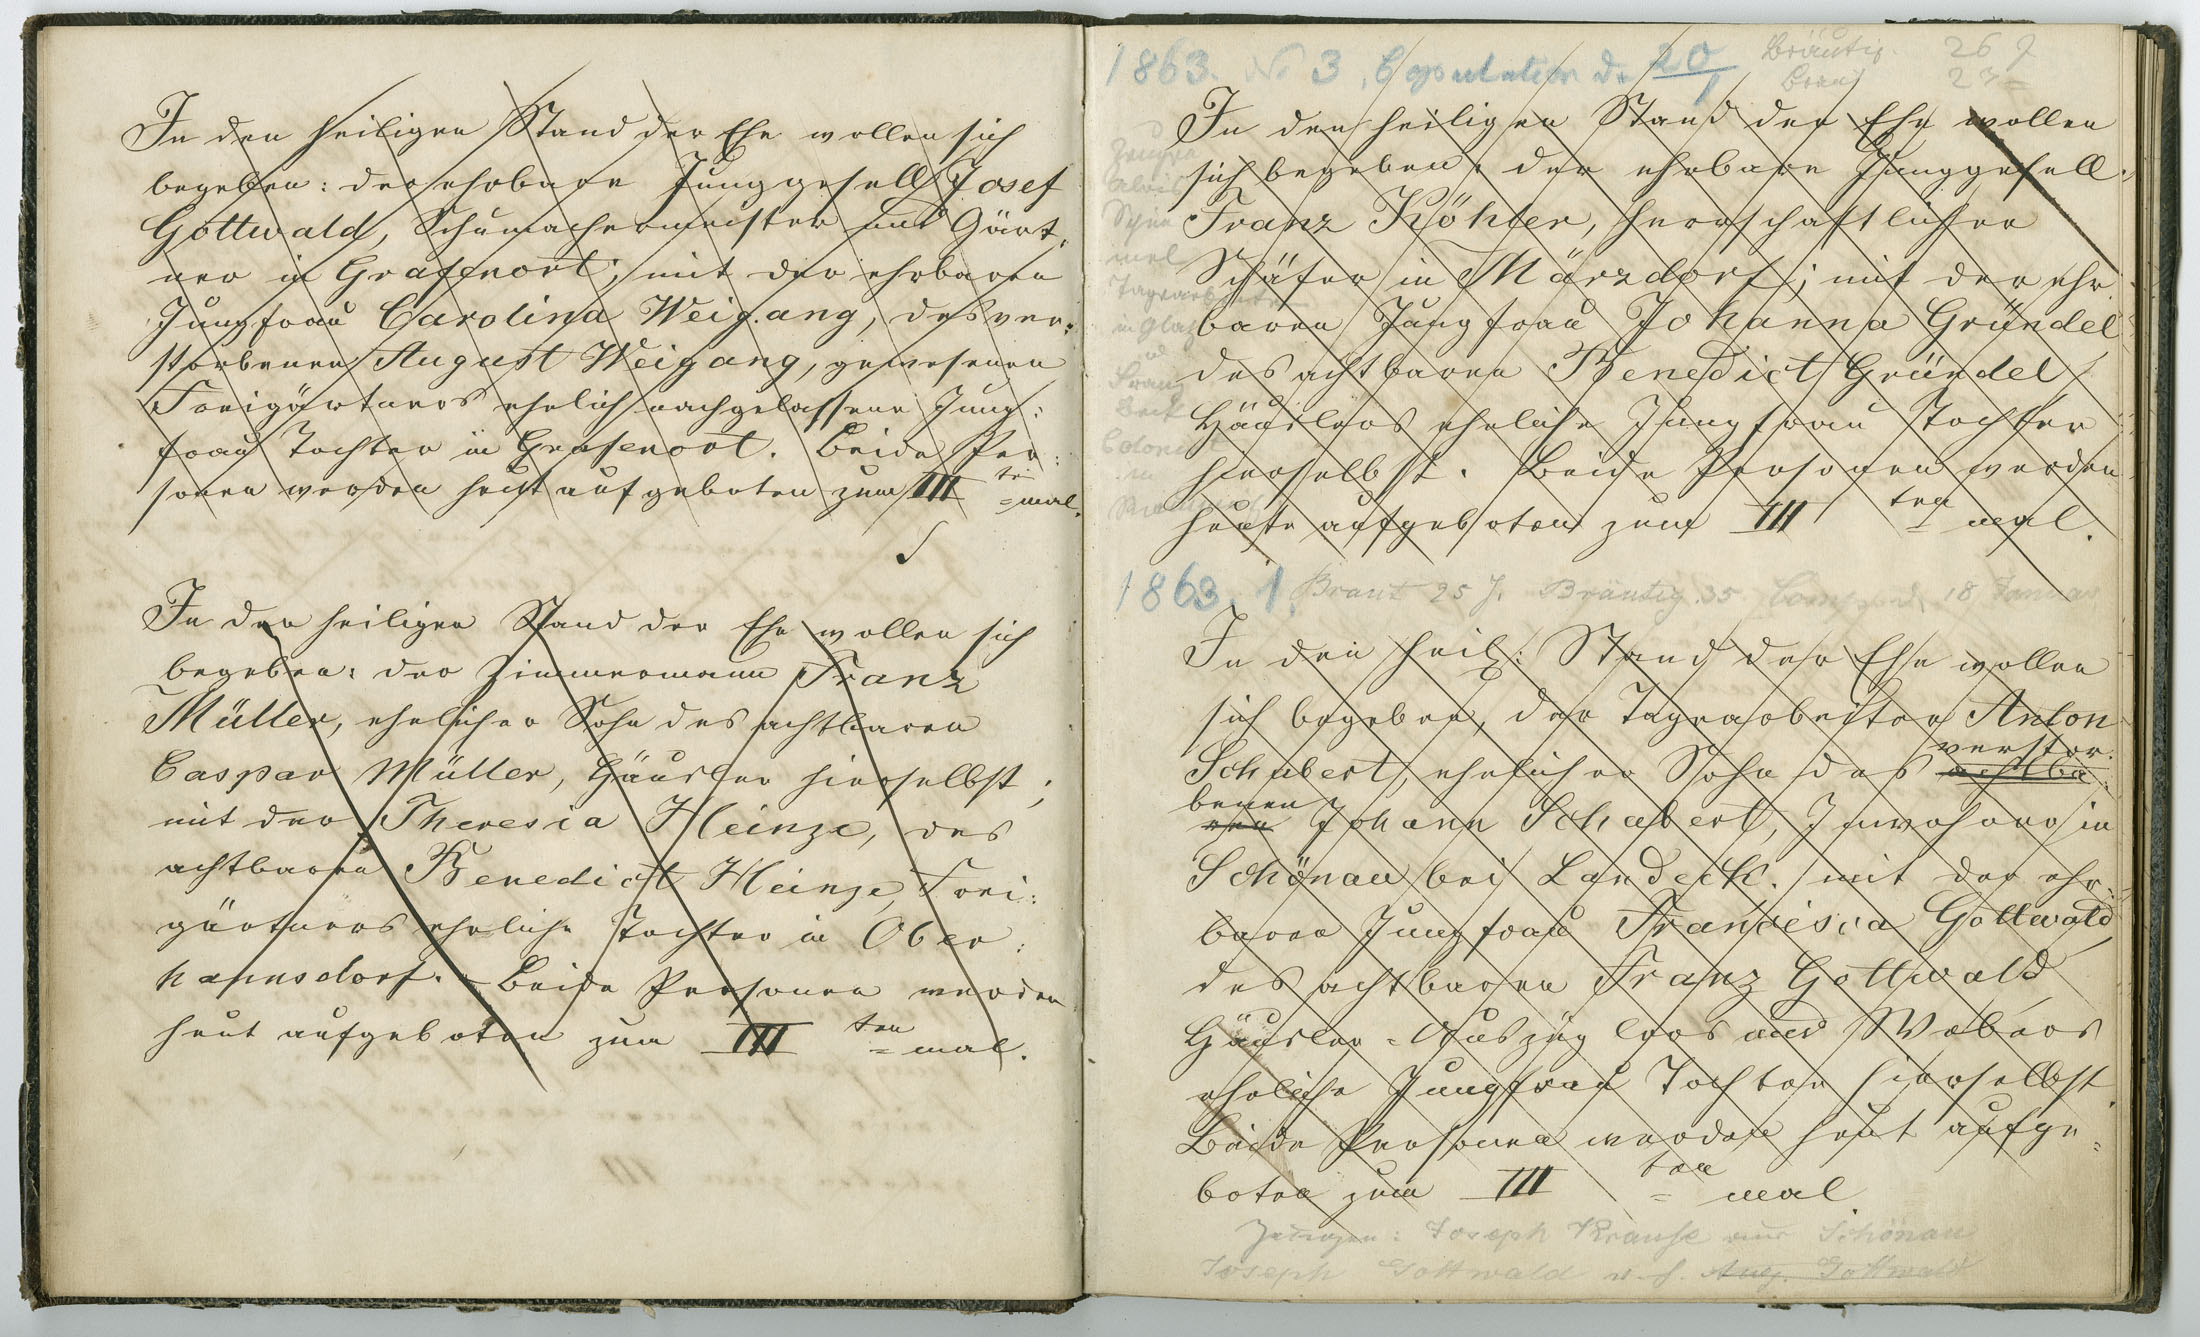 In den heiligen Stand der Ehe wollen sich
begeben: der ehrbare Junggesell Josef
Gottwald, Schumachermeister und Gärt-
ner in Grafenort; mit der ehrbaren
Jungfrau Carolina Weigang, des ver-
storbenen August Weigang, gewesenen
Freigärtners ehelich nachgelassene Jung-
frau Tochter in Grafenort. Beide Per-
sonen werden heut aufgeboten zum III ten =mal.
In den heiligen Stand der Ehe wollen sich
begeben: der Zimmermann Franz
Müller, ehelicher Sohn des achtbaren
Caspar Müller, Häusler hierselbst;
mit der Theresia Heinze, des
achtbaren Benedict Heinze, Frei-
gärtners eheliche Tochter in Ober-
hannsdorf. Beide Personen werden
heut aufgeboten zum III ten =mal.
1863. No 3. Copulation d. 20/1 Bräutig. 26 J
Braut 23 =
In den heiligen Stand der Ehe wollen
sich begeben, der ehrbare Junggesell
Franz Köhler, herrschaftlicher
Schäfer in Märzdorf; mit der ehr
baren Jungfrau Johanna Gründel
des achtbaren Benedict Gründel
Häuslers eheliche Jungfrau Tochter
hierselbst. Beide Personen werden
heute aufgeboten zum III ten = mal.
Tagearbeiter
in Glatz
Franz
1863. 1. Braut 25 J. Bräutig. 35 18 Januar
In den heil: Stand der Ehe wollen
sich begeben, der Tagearbeiter Anton
Schubert, ehelicher Sohn des achtba verstor-
ren benen Johann Schubert, Inwohners in
Schönau bei Landeck. mit der ehr-
baren Jungfrau Francisca Gottwald
des achtbaren Franz Gottwald
Häusler-Auszüglers und Webers
eheliche Jungfrau Tochter hierselbst.
Beide Personen werden heut aufge-
boten zum III ten = mal
Zeugen: Joseph Krause aus Schönau
Joseph Gottwald Aug. Gottwald